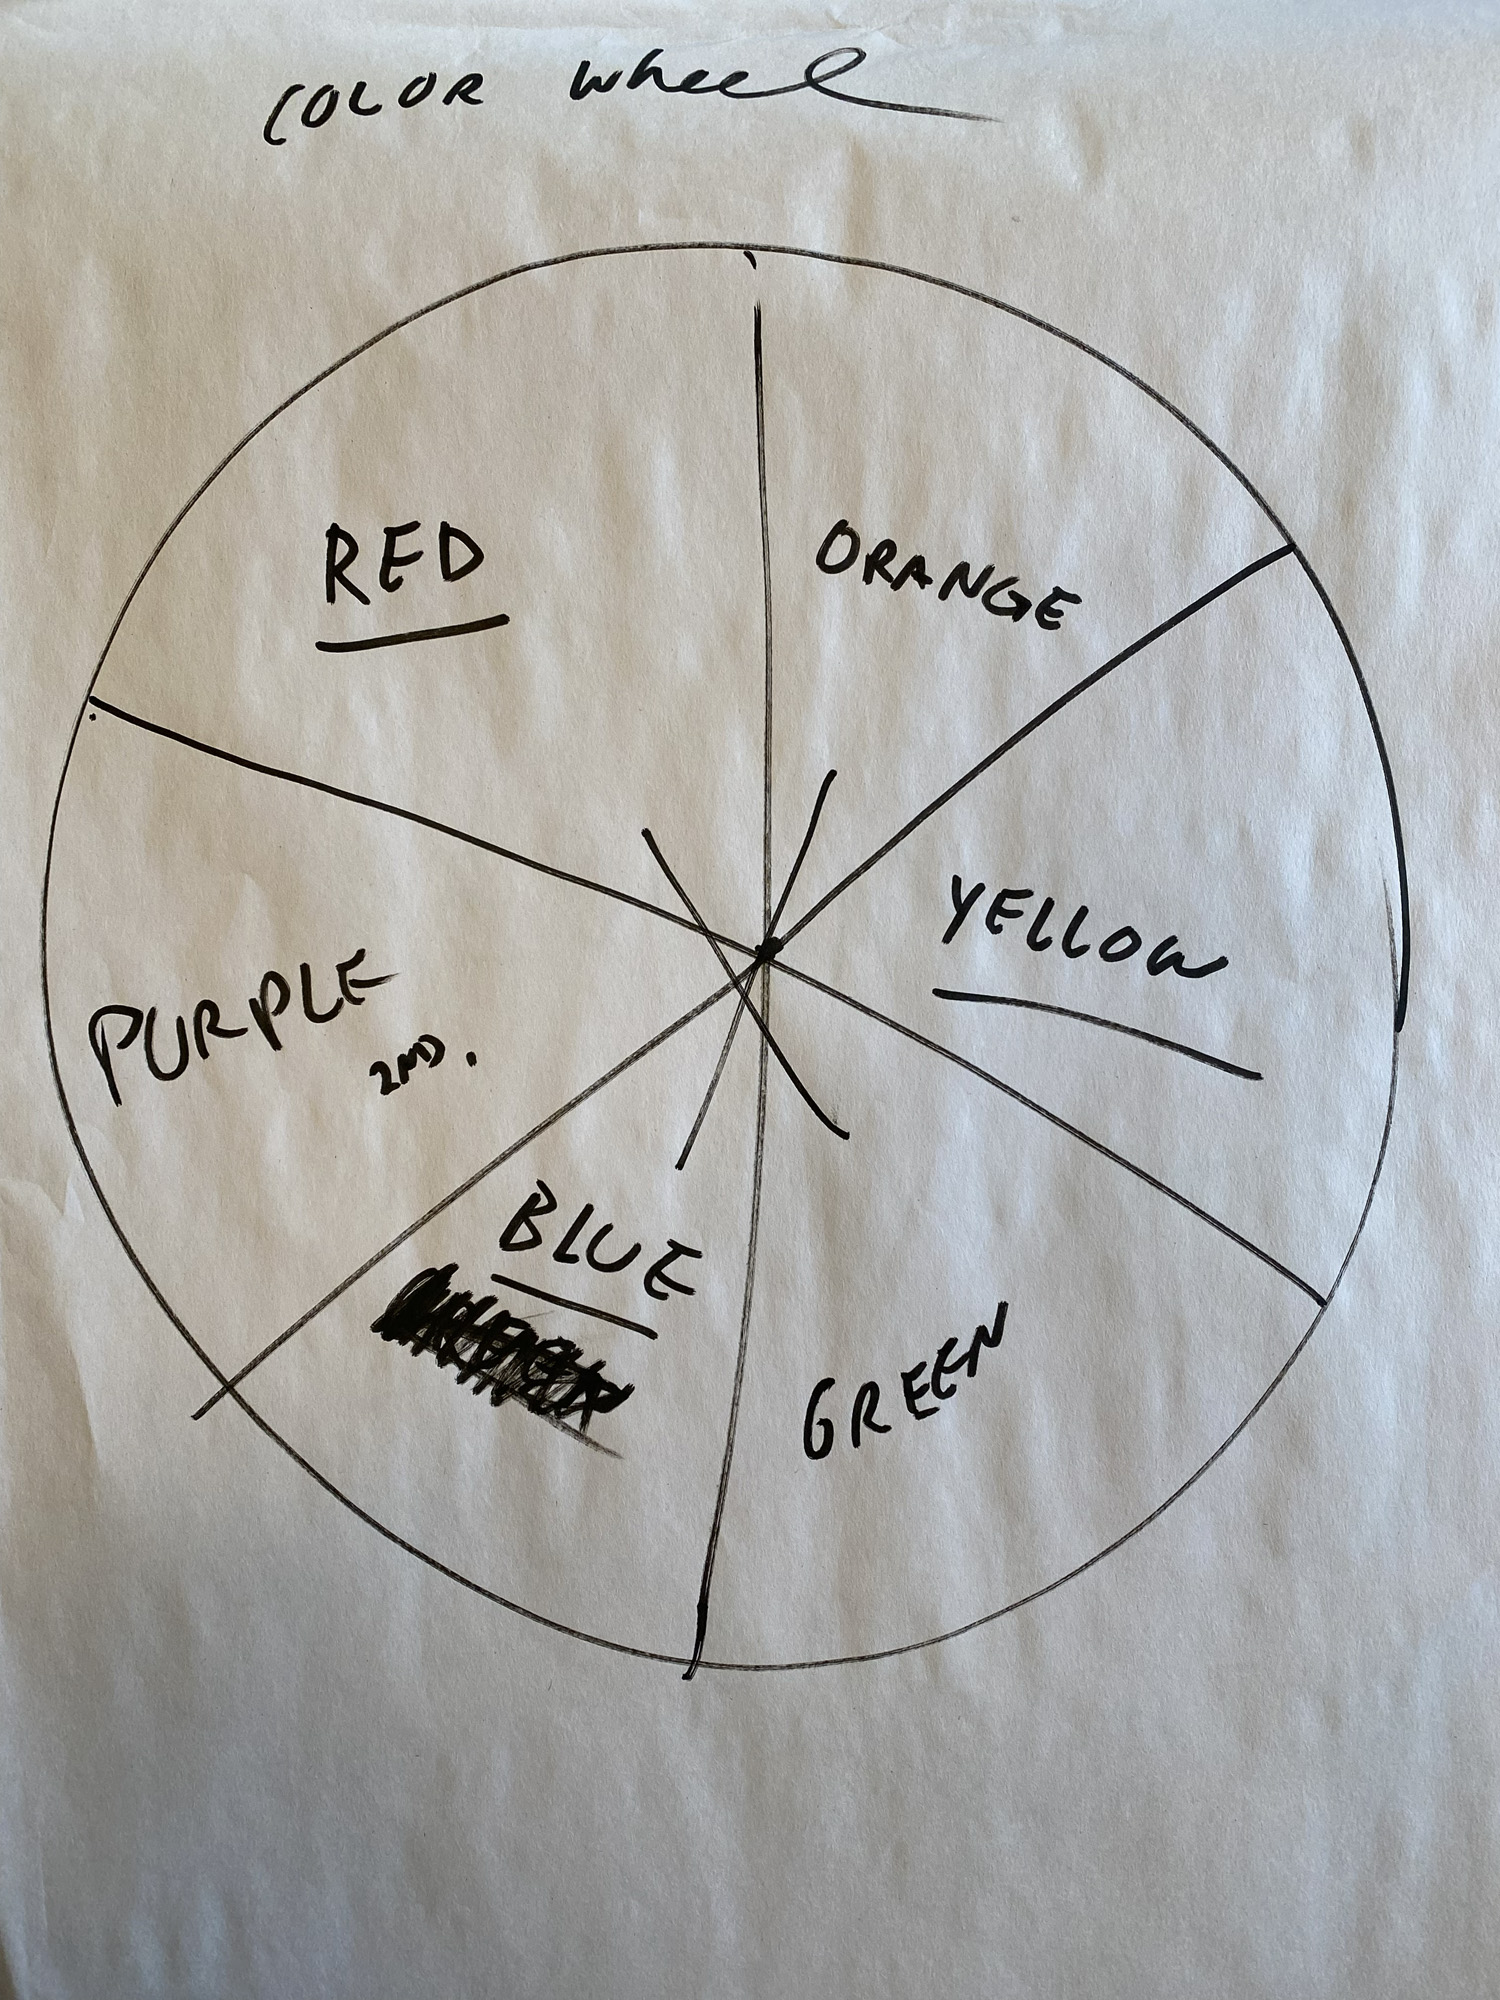 COLOR wheel
RED
ORANGE
YELLOW
PURPLE
2ND.
BLUE
GREEN